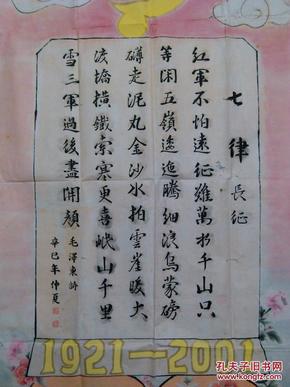 七律 長征
紅軍不怕遠征難萬水千山只
等闲五嶺逶迤騰細浪烏蒙磅
礴走泥丸金沙水拍雲崖暖大
渡橋橫鐵索寒更喜岷山千里
雪三軍過後盡開顏
毛澤東詩
辛巳年仲夏
1921-2001
孔夫子旧书网